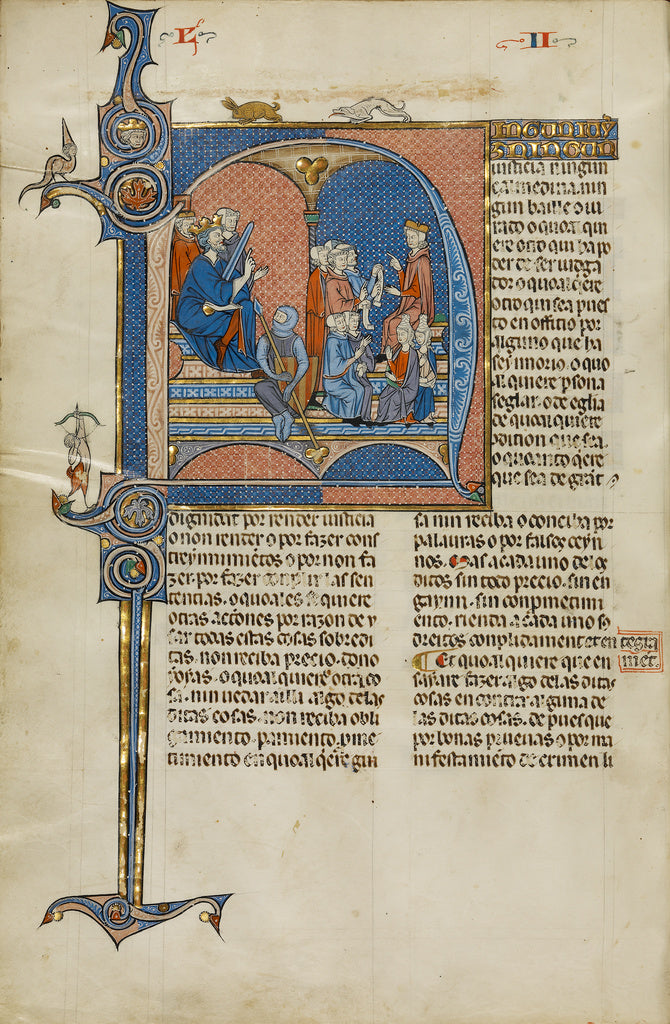 L II
INGUN IU
ZNINGUN
iusticia ningun
çalmedina nin
gun baille o iu
rado o qual qui
ere otro qui ha po
der de ser iudga
dor o qual qere
otro qui sea pues
to en officio por
alguno que ha
seynnorio. o quo
al quiere psona
seglar. o de eglia
de qual quiere
condition que sea.
o quanto qere
que sea de grāt
dignidat por render iusticia
o non render o por fazer cons
treynnimietos o por non fa
zer. por fazer las sen
tencias. o quales quiere
otras actiones por razon de y
sar todas estas cosas sobredi
tas. non reciba precio. dono
ioyas. o qual quiere otra co
sa. nin uedar alli algo delas
ditas cosas. non reciba obli
gamiento. pamiento. pme
timiento en qual qere gui
sa nin reciba o conciba por
palauras o por falsos ceyn
nos. Mas a cada uno delos
ditos sin todo precio. sin en
gaynn. sin conpmetimi
ento. rienda a cada uno so
dreitos conplidament et en tegra
ment.
Et qual quiere que en
sayare fazer algo delas ditas
cosas en contra alguna de
las ditas cosas. de pues que
por bonas prueuas o por ma
nifestamieto de crimen li